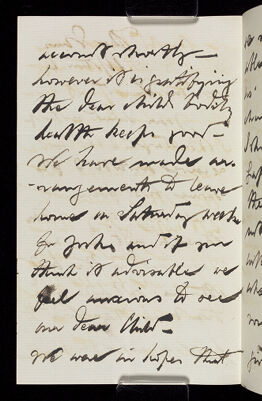 account shortly —
however it is gratifying
the dear child bodily
health keeps good —
We have made ar
-rangements to leave
home on Saturday week
for Yorks and if you
think it advisable we
feel anxious to see
our dear Child —
We was in hopes that